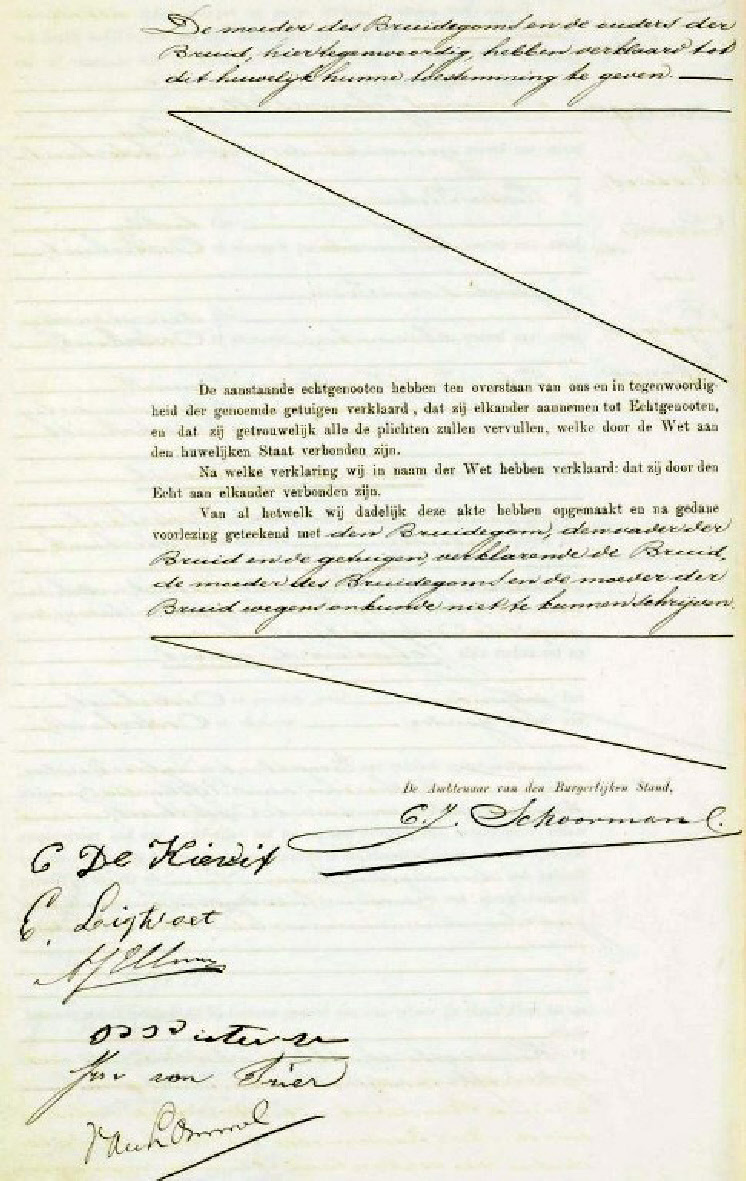 De moeder des Bruidegoms en de ouders der
Bruid, hiertegenwoordig, hebben verklaard tot
dit huwelijk hunne toestemming te geven. —
De aanstaande echtgenooten hebben ten overstaan van ons en in tegenwoordig-
heid der genoemde getuigen verklaard, dat zij elkander aannemen tot Echtgenooten,
en dat zij getrouwelijk alle de plichten zullen vervullen, welke door de Wet aan
den huwelijken Staat verbonden zijn.
Na welke verklaring wij in naam der Wet hebben verklaard: dat zij door den
Echt aan elkander verbonden zijn.
Van al hetwelk wij dadelijk deze akte hebben opgemaakt en na gedane
voorlezing geteekend met den Bruidegom, den vader der
Bruid en de getuigen, verklarende de Bruid,
de moeder des Bruidegoms en de moeder der
Bruid wegens onkunde niet te kunnen schrijven.
De Ambtenaar van den Burgerlijken Stand,
C. J. Schoorman
C De Kievit
C. Ligtvoet
van Trier